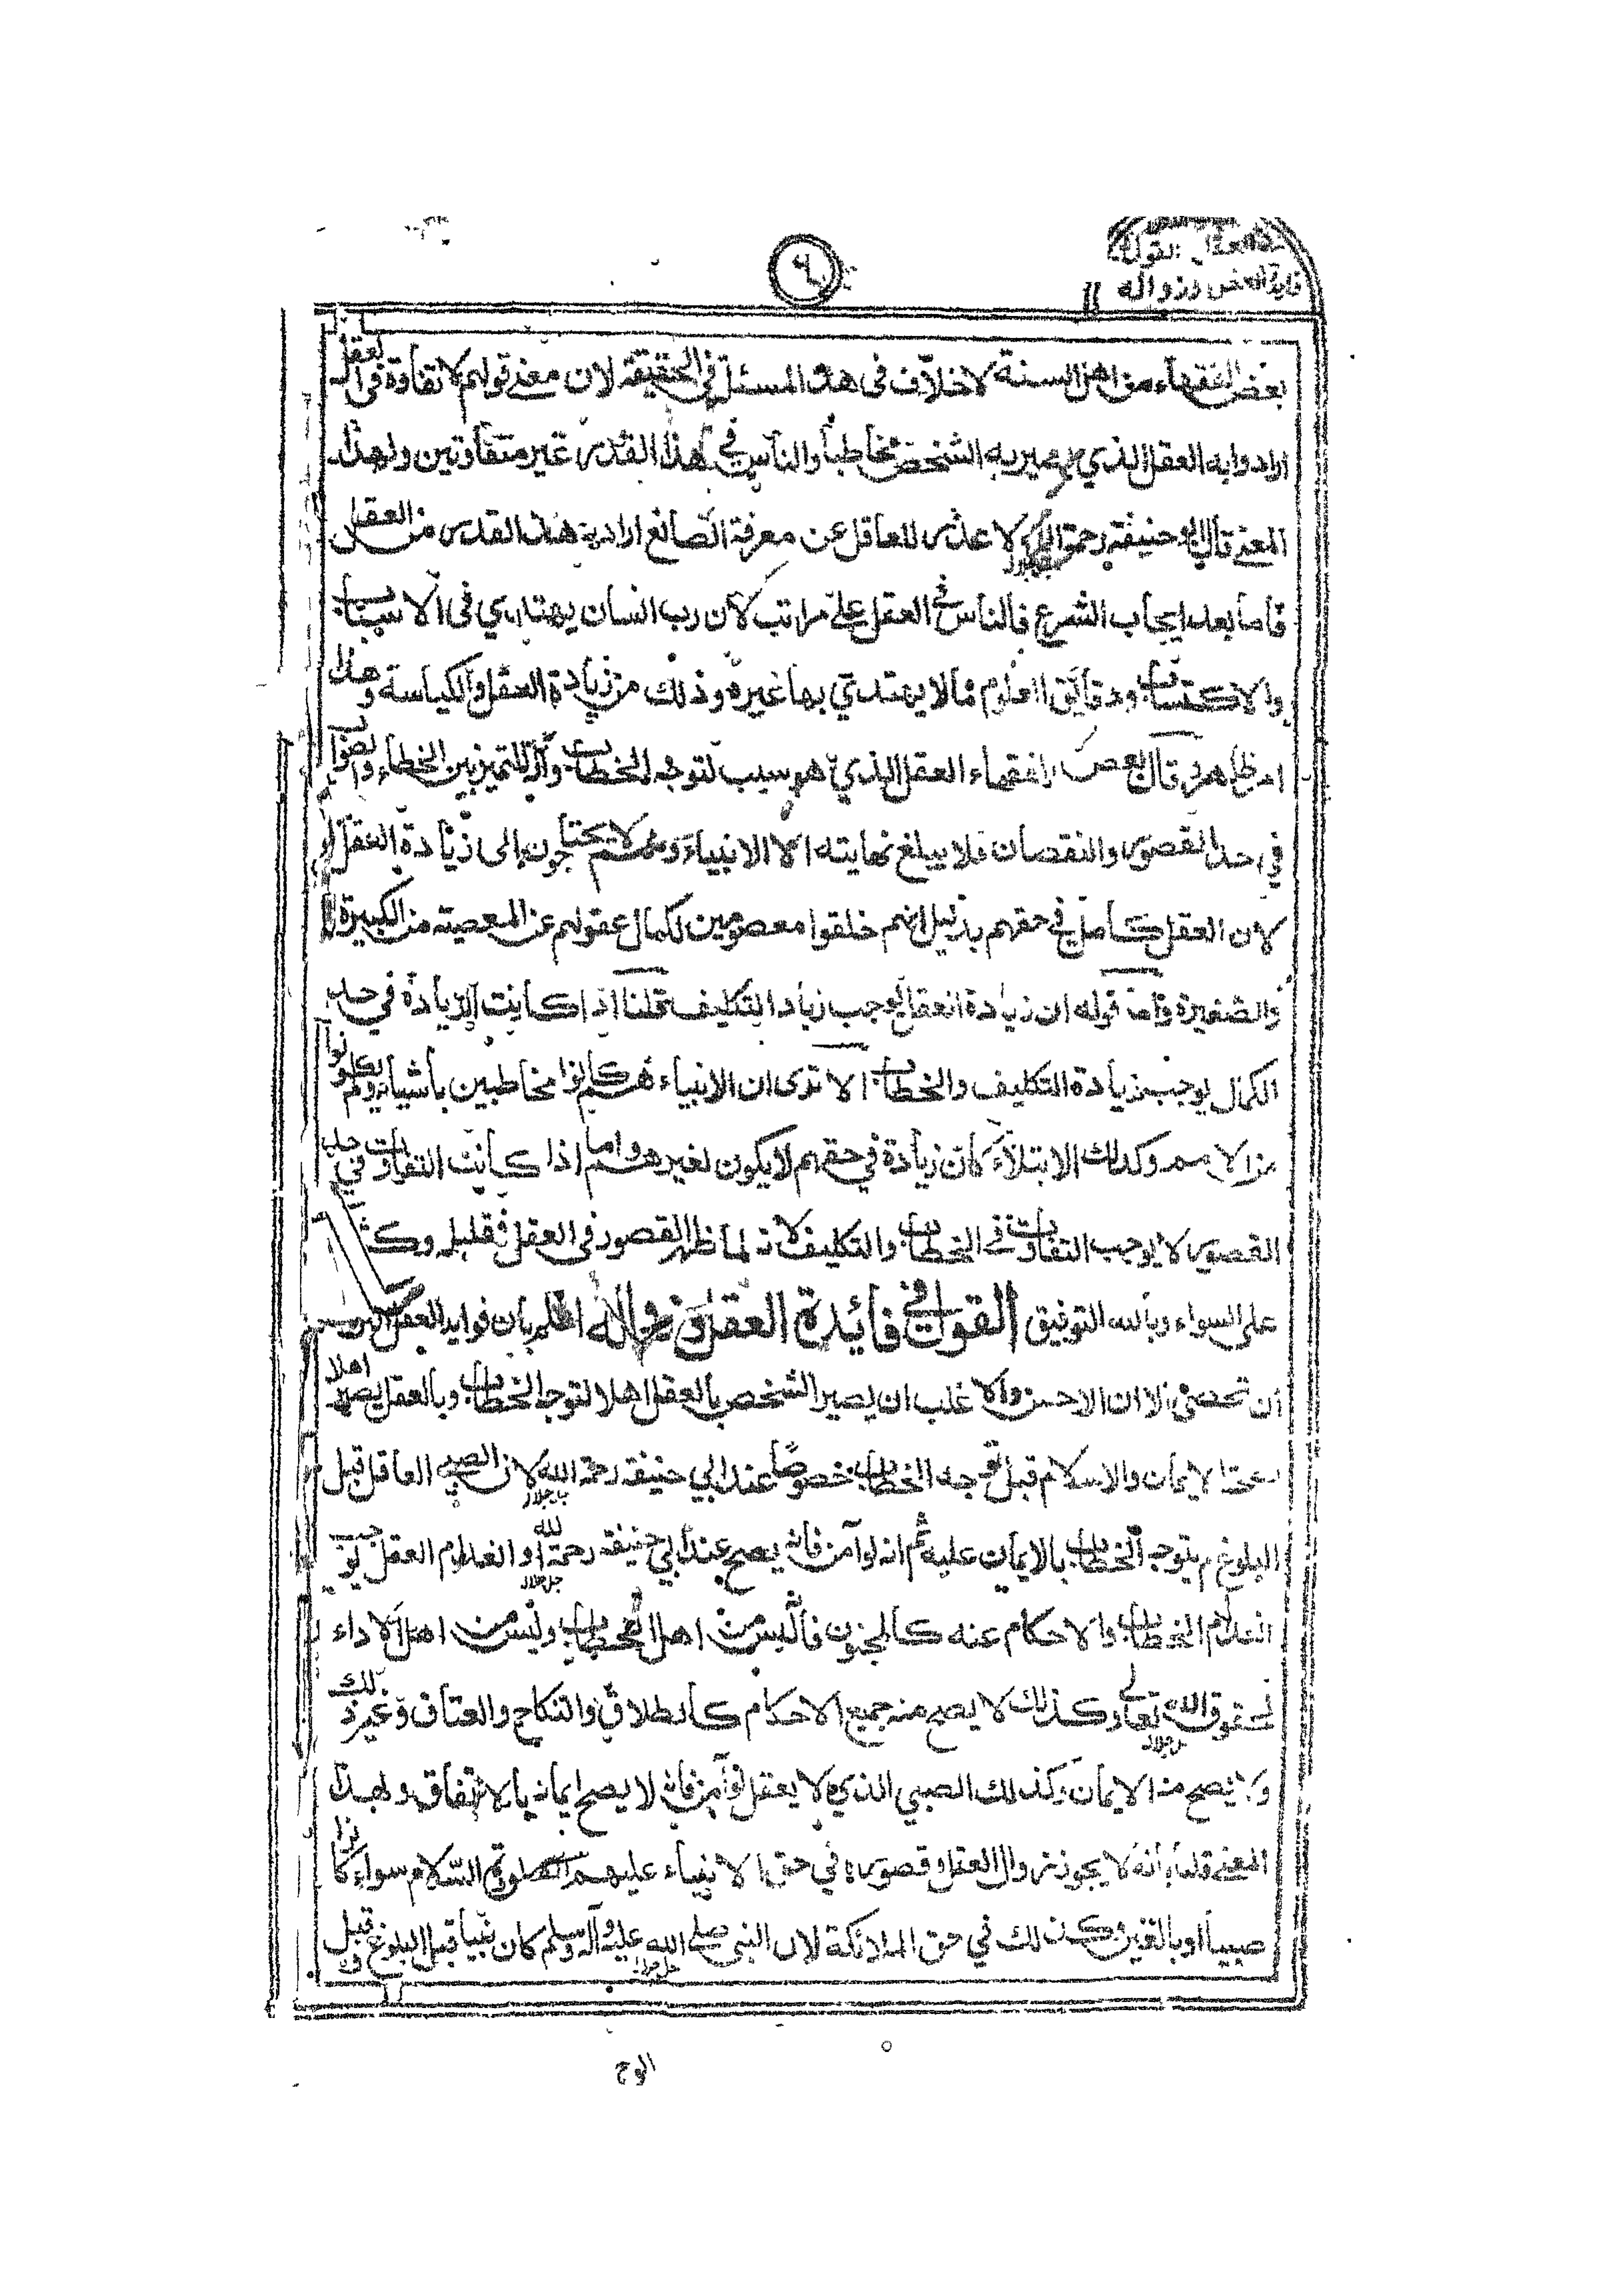 القول في
فائدة العقل وزواله
بعض الفقهاء من اهل السنة لا خلاف فى هذه المسئلة فى الحقيقة لان معنے قولهم لا تفاوة فى العقل
ارادوا به العقل الذي يميز به الشخص مخاطبا والناس في هذا القدر غير متفاوتين ولهذا
المعنے قال ابو حنيفة رحمة الله لا عذر للعاقل عن معرفة الصانع اراد به هذا القدر من العقل
فاما بعد ايجاب الشرع فالناس في العقل علے مراتب لان رب انسان يهتدي فى الاسباب
والاكتساب ودقايق العلوم مالا يهتدي بها غيره وذلك من زيادة العقل والكياسة وهذا
امر ظاهر وقال بعض الفقهاء العقل الذي هو سبب لتوجه الخطاب وآلة للتميز بين الخطاء والصواب
في حد القصور والنقصان فلا يبلغ نهايته الا الانبياء وهم لا يحتاجون الى زيادة العقل
لان العقل كامل في حقهم بدليل انهم خلقوا معصومين لكمال عقولهم عن المعصية من الكبيرة
والصغيرة واما قوله ان زيادة العقل يوجب زياد التكليف قلنا اذا كانت الزيادة في حد
الكمال يوجب زيادة التكليف والخطاب الا ترى ان الانبياء هم كانوا مخاطبين باشياء ولم يكونوا
من الامم وكذلك الابتلاء كان زيادة في حقهم لا يكون لغيرهم واما اذا كانت التفاوت في حد
القصور لا يوجب التفاوت فے الخطاب والتكليف لانه لما ظهر القصور فى العقل فقليله وكثـ
على السواء وبالله التوفيق القول في فائدة العقل و زواله اعلم بان فوايد العقل اكثر من
ان تحصى الا ان الاحسن والاغلب ان يصير الشخص بالعقل اهلا لتوجه الخطاب وبالعقل يصير اهلا
الايمان والاسلام قبل توجه الخطاب خصوصًا عند ابي حنيفة رحمة الله لان الصبي العاقل قبل
البلوغ لم يتوجه الخطاب بالايمان عليه ثم انه لو آمن فانه يصح عند ابي حنيفة رحمة الله و انعدام العقل يوجب
انعدام الخطاب والاحكام عنه كالمجنون فانه ليس من اهل الخطاب وليس من اهل الاداء
لحقوق الله تعالى وكذلك لا يصح منه جميع الاحكام كالطلاق والنكاح والعتاق وغير ذلك
ولا يصح منه الايمان وكذلك الصبي الذي لا يعقل لو آمن فانه لا يصح ايمانه بالاتفاق ولهذا
المعنے قلنا بانه لا يجوز زوال العقل وقصوره في حق الانبياء عليهم الصلوة والسلام سواء كانوا
صبيا او بالغين وكذلك في حق الملائكة لان النبى صلى الله عليه وآله وسلم كان نبيا قبل البلوغ وقبل
الوح